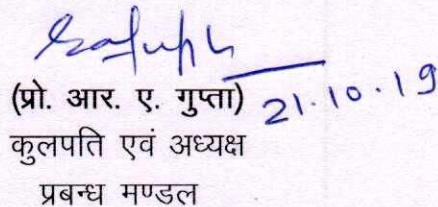 (प्रो. आर. ए. गुप्ता) 21.10.19
कुलपति एवं अध्यक्ष
प्रबन्ध मण्डल